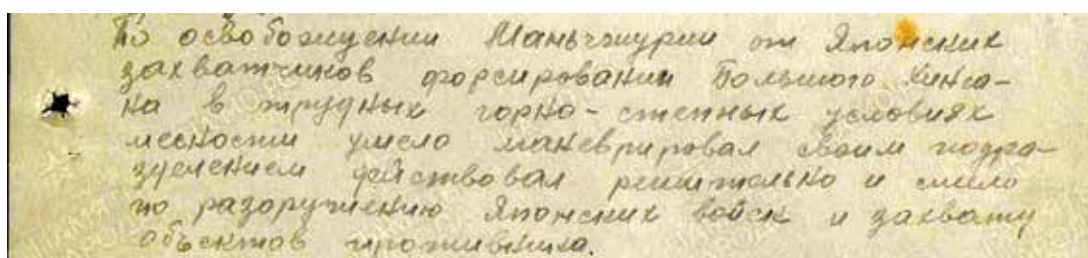 По освобождении Маньчжурии от Японских
захватчиков форсировании Большого Хинга-
на в трудных горно-степных условиях
месности умело маневрировал своим подра-
зделением действовал решительно и смело
по разоружению Японских войск и захвату
объектов противника.